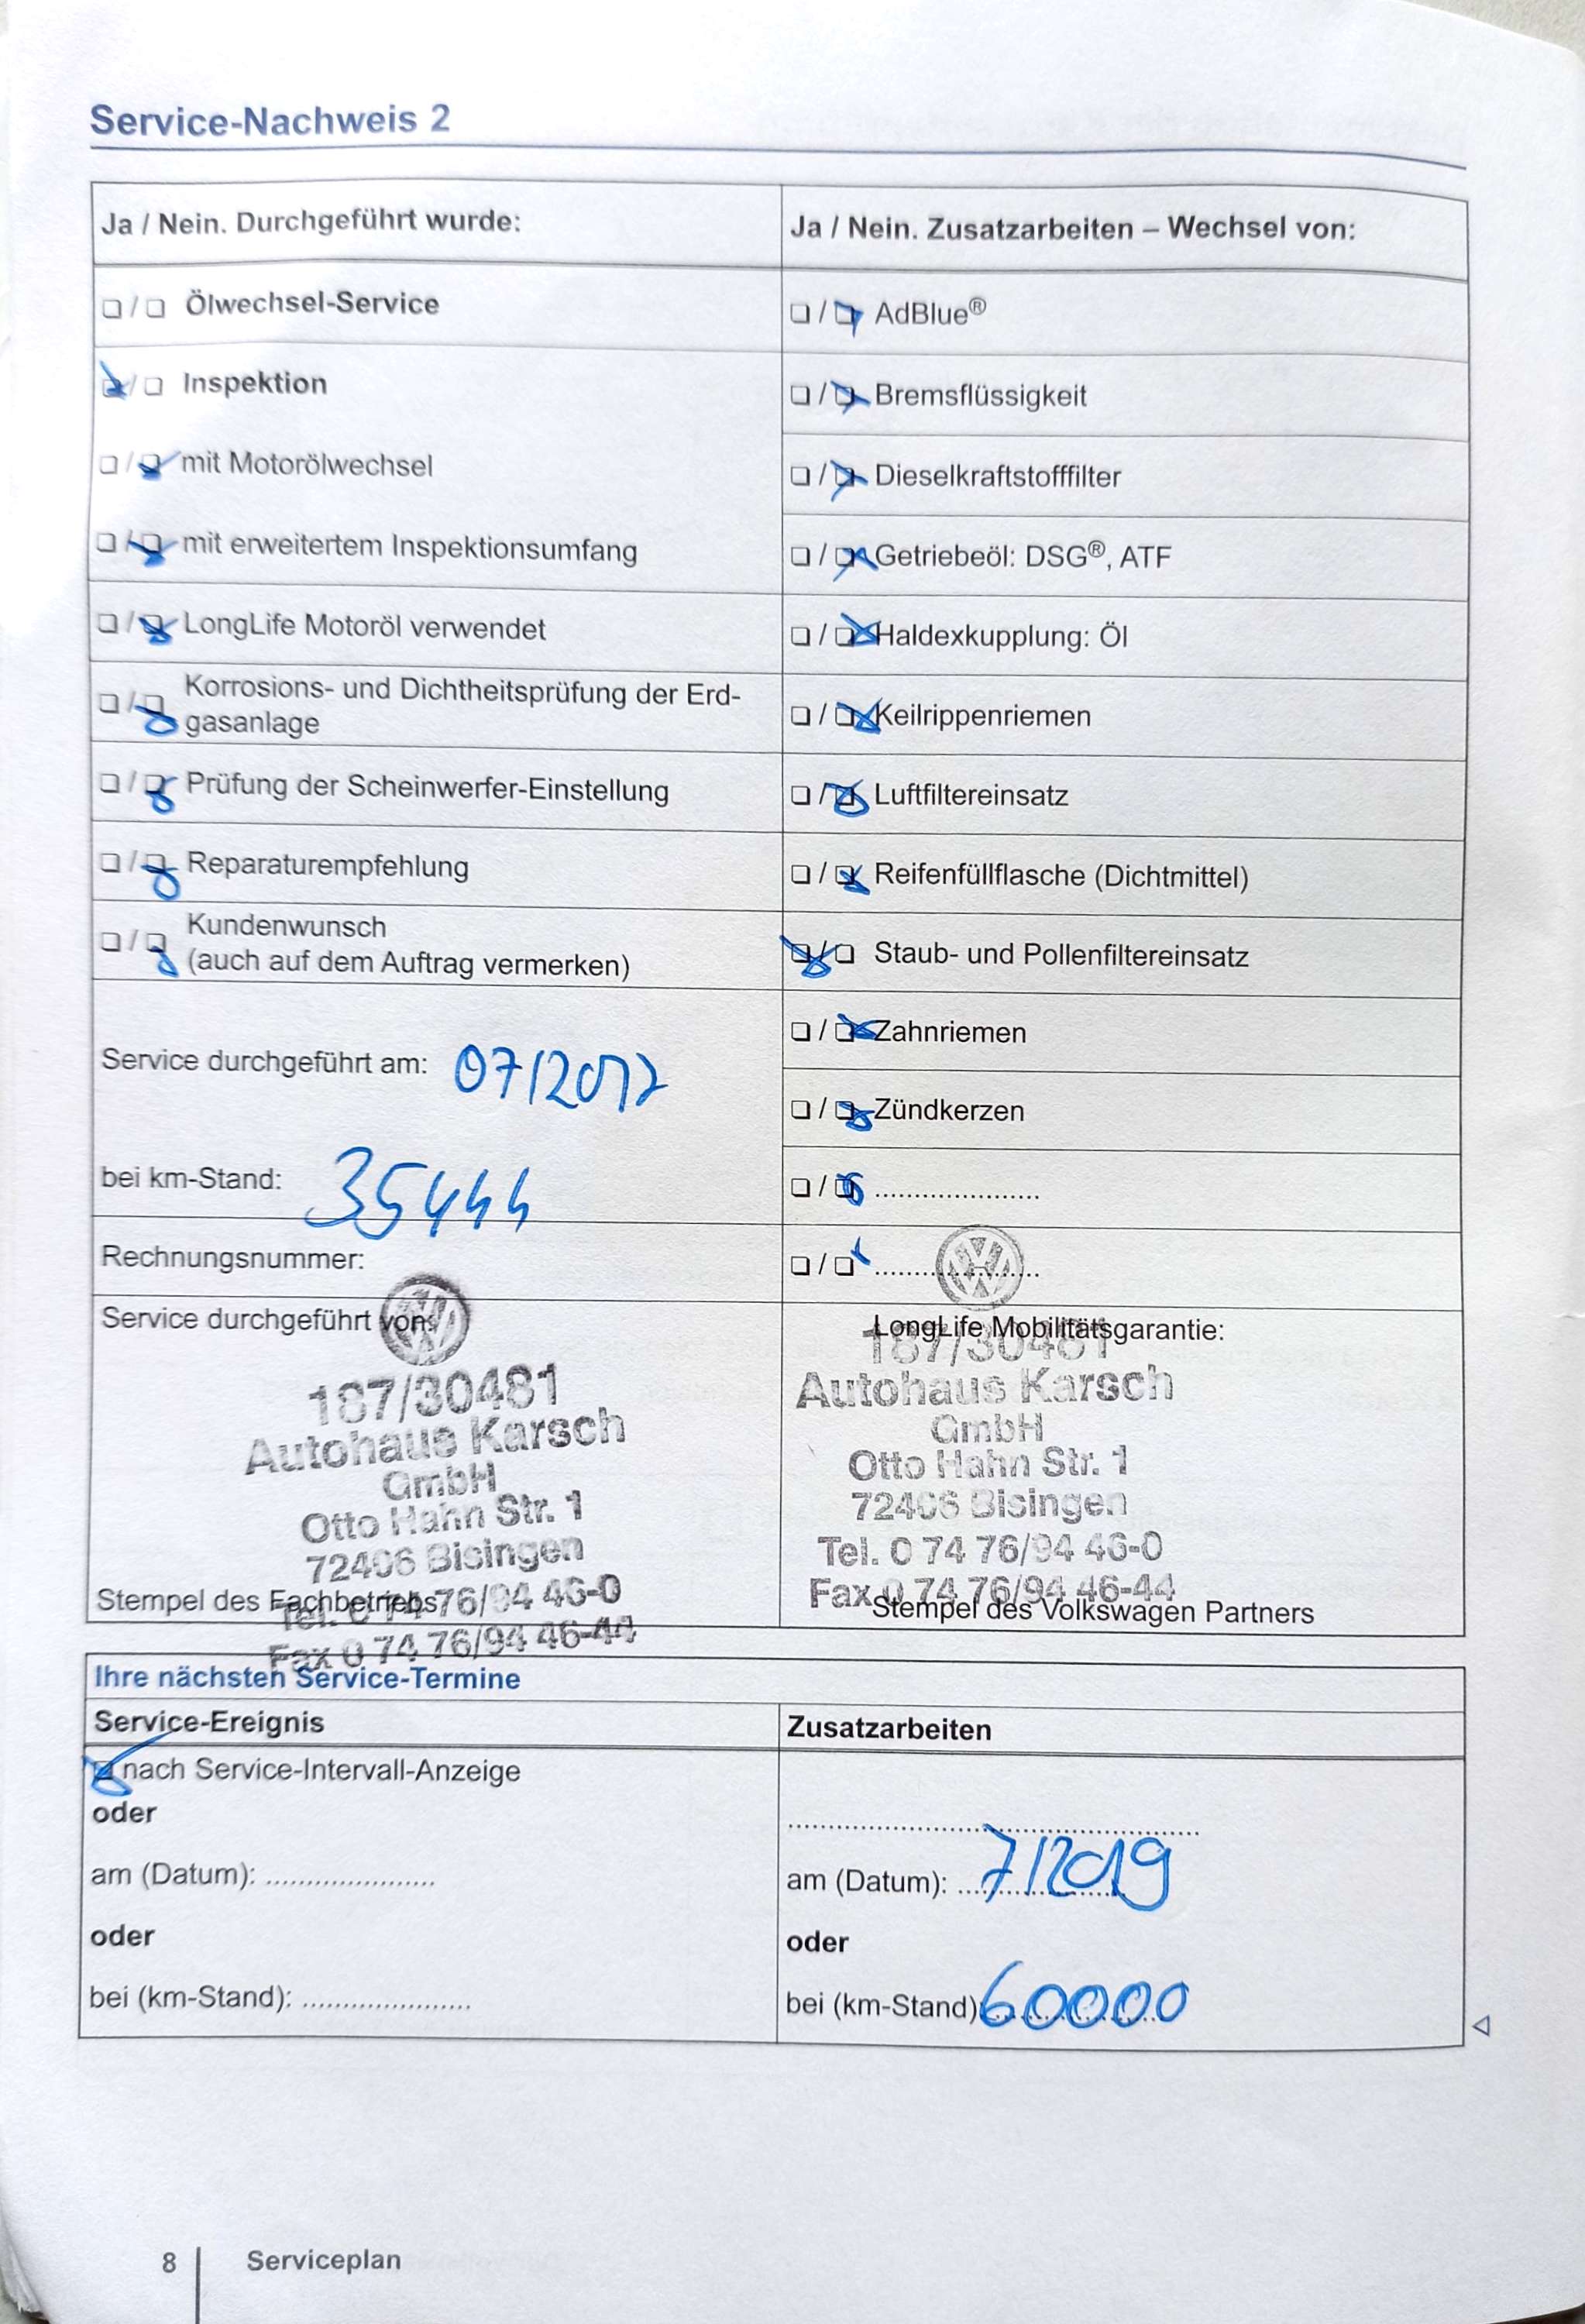 Service-Nachweis 2
Ja / Nein. Durchgeführt wurde:
❏ / ❏ Ölwechsel-Service
❏ / ❏ Inspektion
❏ / ❏ mit Motorölwechsel
❏ / ❏ mit erweitertem Inspektionsumfang
❏ / ❏ LongLife Motoröl verwendet
❏ / ❏ Korrosions- und Dichtheitsprüfung der Erd-
gasanlage
❏ / ❏ Prüfung der Scheinwerfer-Einstellung
❏ / ❏ Reparaturempfehlung
❏ / ❏ Kundenwunsch
(auch auf dem Auftrag vermerken)
Service durchgeführt am: 07/2017
bei km-Stand: 35444
Rechnungsnummer:
Service durchgeführt von:
187/30481
Autohaus Karsch
GmbH
Otto Hahn Str. 1
72406 Bisingen
Tel. 0 74 76/94 46-0
Fax 0 74 76/94 46-44
Stempel des Fachbetriebs
Ja / Nein. Zusatzarbeiten – Wechsel von:
❏ / ❏ AdBlue®
❏ / ❏ Bremsflüssigkeit
❏ / ❏ Dieselkraftstofffilter
❏ / ❏ Getriebeöl: DSG®, ATF
❏ / ❏ Haldexkupplung: Öl
❏ / ❏ Keilrippenriemen
❏ / ❏ Luftfiltereinsatz
❏ / ❏ Reifenfüllflasche (Dichtmittel)
❏ / ❏ Staub- und Pollenfiltereinsatz
❏ / ❏ Zahnriemen
❏ / ❏ Zündkerzen
❏ / ❏ .....................
❏ / ❏ .....................
LongLife Mobilitätsgarantie:
187/30481
Autohaus Karsch
GmbH
Otto Hahn Str. 1
72406 Bisingen
Tel. 0 74 76/94 46-0
Fax 0 74 76/94 46-44
Stempel des Volkswagen Partners
Ihre nächsten Service-Termine
Service-Ereignis
❏ nach Service-Intervall-Anzeige
oder
am (Datum): .....................
oder
bei (km-Stand): .....................
Zusatzarbeiten
..................................................
am (Datum): 7/2019
oder
bei (km-Stand): 60000
8 Serviceplan